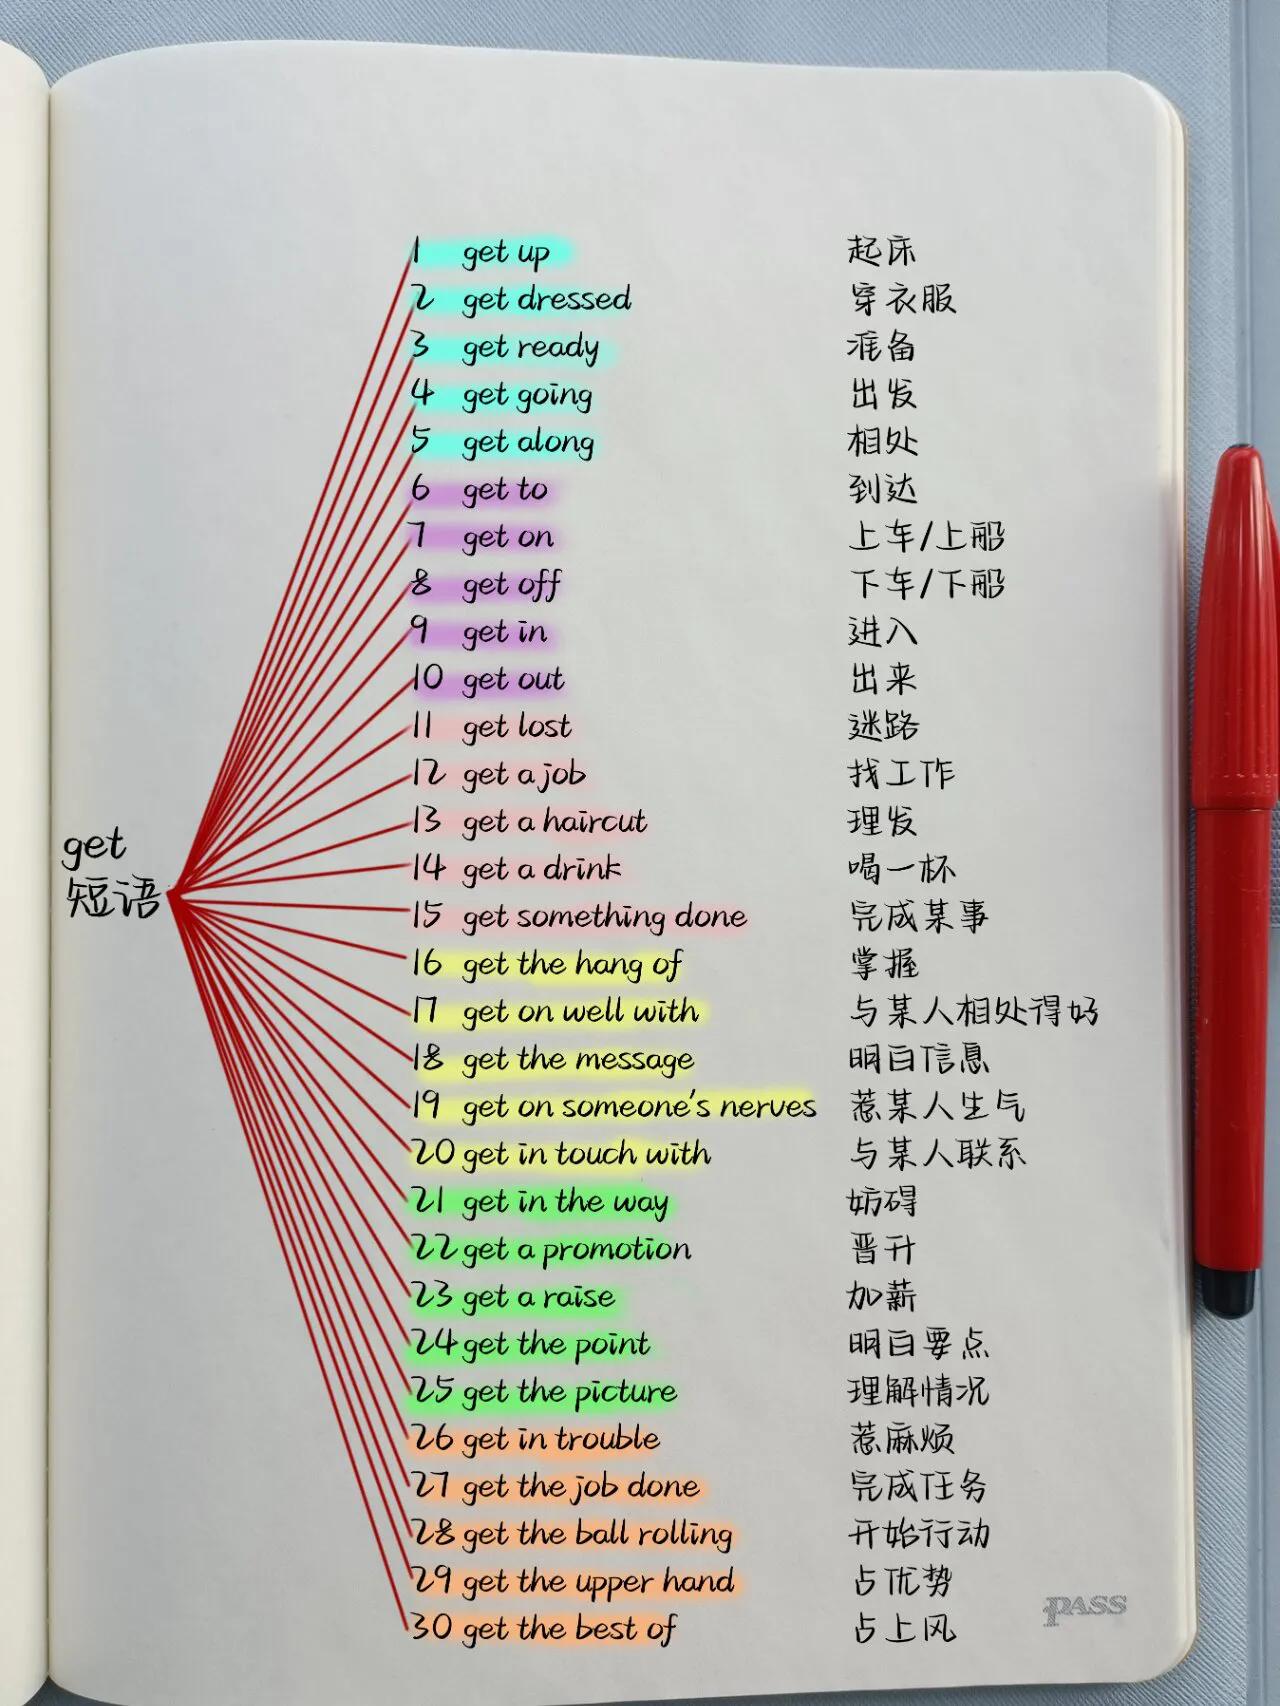 get
短语
1 get up 起床
2 get dressed 穿衣服
3 get ready 准备
4 get going 出发
5 get along 相处
6 get to 到达
7 get on 上车/上船
8 get off 下车/下船
9 get in 进入
10 get out 出来
11 get lost 迷路
12 get a job 找工作
13 get a haircut 理发
14 get a drink 喝一杯
15 get something done 完成某事
16 get the hang of 掌握
17 get on well with 与某人相处得好
18 get the message 明白信息
19 get on someone's nerves 惹某人生气
20 get in touch with 与某人联系
21 get in the way 妨碍
22 get a promotion 晋升
23 get a raise 加薪
24 get the point 明白要点
25 get the picture 理解情况
26 get in trouble 惹麻烦
27 get the job done 完成任务
28 get the ball rolling 开始行动
29 get the upper hand 占优势
30 get the best of 占上风
PASS